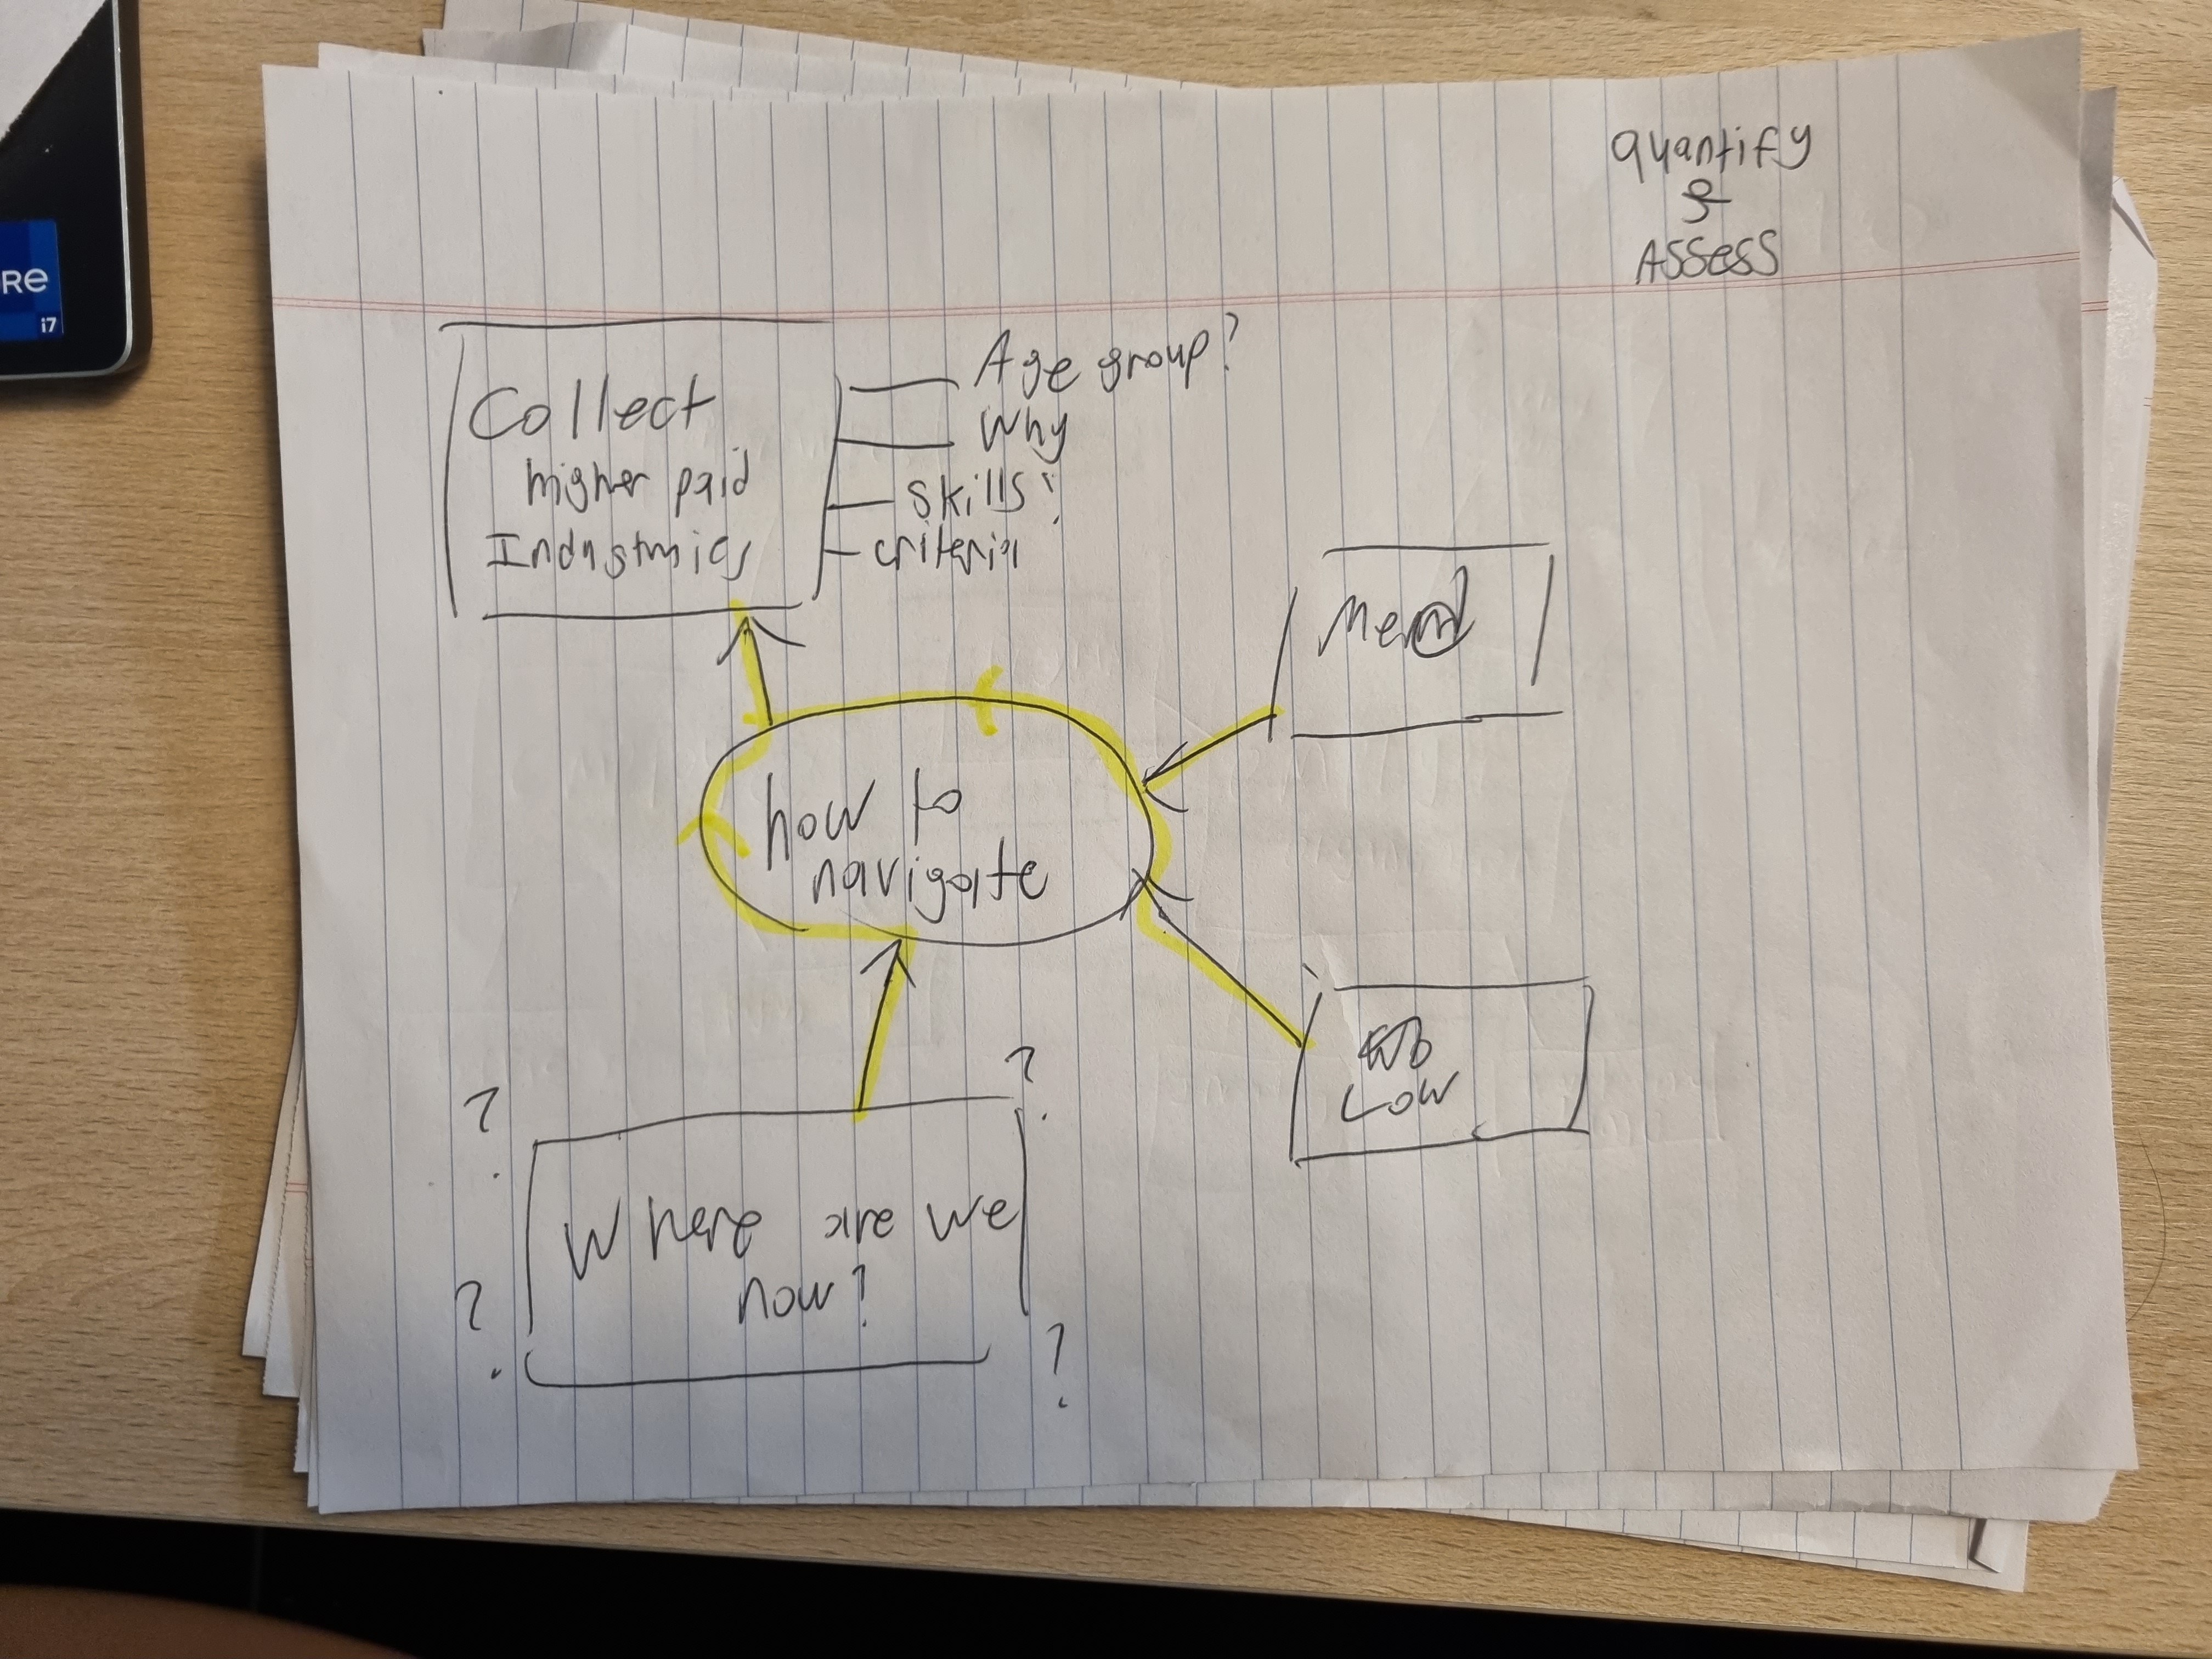 RE
i7
quantify
&
Assess
Collect
higher paid
Industries
Age group?
Why
skills?
criteria
how to
navigate
Low
?
?
Where are we
now?
?
?